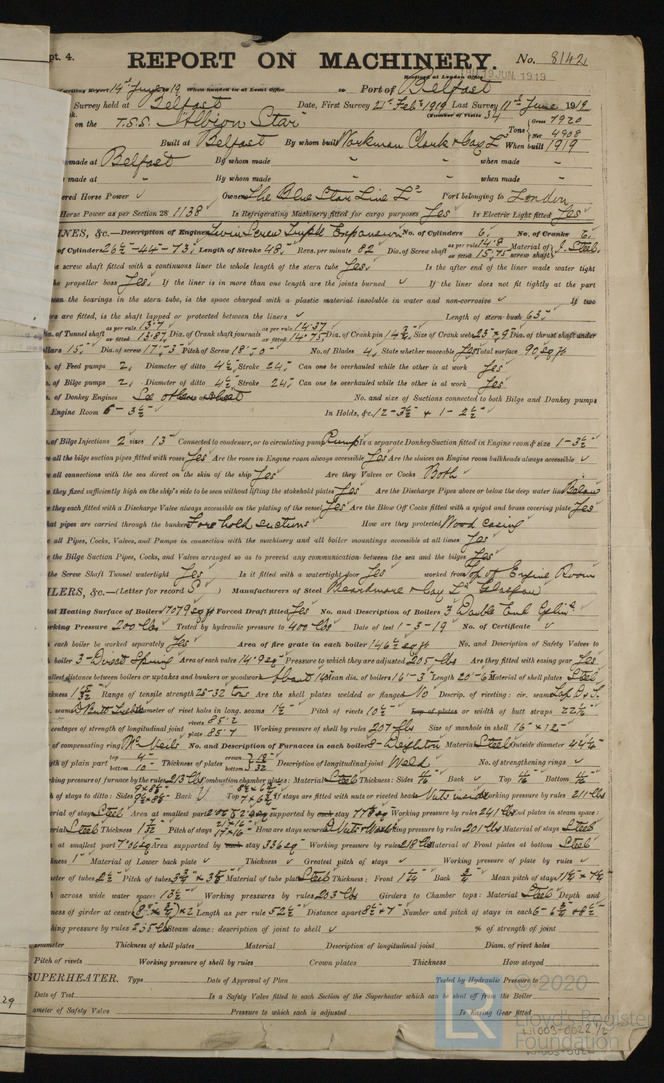 pt. 4.
REPORT ON MACHINERY.
No. 8142
Received at London Office 19 JUN. 1919
Writing Report 14th June 1919 When handed in at Local Office to Port of Belfast
Survey held at Belfast Date, First Survey 21st Feby 1919 Last Survey 11th June 1919
(Number of Visits 34
on the T.S.S. Albion Star Tons Gross 7920 Net 4908
Built at Belfast By whom built Workman Clark & Coy Ld When built 1919
made at Belfast By whom made " " when made "
made at " By whom made " " when made "
ered Horse Power Owners The Blue Star Line Ld Port belonging to London
Horse Power as per Section 28 1138 Is Refrigerating Machinery fitted for cargo purposes Yes Is Electric Light fitted Yes
INES, &c.—Description of Engines Twin Screw Triple Expansion No. of Cylinders 6 No. of Cranks 6
of Cylinders 26½-44-73 Length of Stroke 48 Revs. per minute 82 Dia. of Screw shaft as per rule 14.8 as fitted 15.75 Material of screw shaft I. Steel
e screw shaft fitted with a continuous liner the whole length of the stern tube Yes Is the after end of the liner made water tight
the propeller boss Yes If the liner is in more than one length are the joints burned If the liner does not fit tightly at the part
een the bearings in the stern tube, is the space charged with a plastic material insoluble in water and non-corrosive If two
rs are fitted, is the shaft lapped or protected between the liners Length of stern bush 63
Dia. of Tunnel shaft as per rule 13.7 as fitted 13.87 Dia. of Crank shaft journals as per rule 14.37 as fitted 14.75 Dia. of Crank pin 14¾ Size of Crank webs 23 × 9 Dia. of thrust shaft under
ollars 15 Dia. of screw 17-3 Pitch of Screw 18-0 No. of Blades 4 State whether moveable Yes Total surface 90 sq ft
o. of Feed pumps 2 Diameter of ditto 4½ Stroke 24 Can one be overhauled while the other is at work Yes
o. of Bilge pumps 2 Diameter of ditto 4½ Stroke 24 Can one be overhauled while the other is at work Yes
o. of Donkey Engines See other sheet No. and size of Suctions connected to both Bilge and Donkey pumps
Engine Room 6-3½ In Holds, &c. 12-3½ & 1-2½
o. of Bilge Injections 2 sizes 13 Connected to condenser, or to circulating pump Pump Is a separate Donkey Suction fitted in Engine room & size 1-3½
all the bilge suction pipes fitted with roses Yes Are the roses in Engine room always accessible Yes Are the sluices on Engine room bulkheads always accessible
e all connections with the sea direct on the skin of the ship Yes Are they Valves or Cocks Both
e they fixed sufficiently high on the ship's side to be seen without lifting the stokehold plates Yes Are the Discharge Pipes above or below the deep water line Below
e they each fitted with a Discharge Valve always accessible on the plating of the vessel Yes Are the Blow Off Cocks fitted with a spigot and brass covering plate Yes
at pipes are carried through the bunkers Fore hold suctions How are they protected Wood casing
e all Pipes, Cocks, Valves, and Pumps in connection with the machinery and all boiler mountings accessible at all times Yes
e the Bilge Suction Pipes, Cocks, and Valves arranged so as to prevent any communication between the sea and the bilges Yes
the Screw Shaft Tunnel watertight Yes Is it fitted with a watertight door Yes worked from Top of Engine Room
ILERS, &c.—(Letter for record S) Manufacturers of Steel Beardmore & Coy Ld Glasgow
tal Heating Surface of Boilers 7079 sq ft Forced Draft fitted Yes No. and Description of Boilers 3 Double End
rking Pressure 200 lbs Tested by hydraulic pressure to 400 lbs Date of test 1-3-19 No. of Certificate
n each boiler be worked separately Yes Area of fire grate in each boiler 146½ sq ft No. and Description of Safety Valves to
h boiler 3-Direct Spring Area of each valve 14.9 sq Pressure to which they are adjusted 205 lbs Are they fitted with easing gear Yes
allest distance between boilers or uptakes and bunkers or woodwork About 14 Mean dia. of boilers 16-3 Length 20-6 Material of shell plates Steel
ckness Range of tensile strength 28-32 tons Are the shell plates welded or flanged No Descrip. of riveting: cir. seams Lap
. seams D Butt Straps Diameter of rivet holes in long. seams 1½ Pitch of rivets 10½ Lap of plates or width of butt straps 22½
centages of strength of longitudinal joint rivets 85.2 plate 85.7 Working pressure of shell by rules 207 lbs Size of manhole in shell 16 × 12
of compensating ring McNeils No. and Description of Furnaces in each boiler 8-Deighton Material Steel Outside diameter 44¼
gth of plain part Thickness of plates Description of longitudinal joint Weld No. of strengthening rings
king pressure of furnace by the rules 213 lbs Combustion chamber plates: Material Steel Thickness: Sides Back Top Bottom
h of stays to ditto: Sides Back Top If stays are fitted with nuts or riveted heads Nuts inside Working pressure by rules 211 lbs
erial of stays Steel Area at smallest part supported by each stay 77 sq Working pressure by rules 241 lbs End plates in steam space:
erial Steel Thickness Pitch of stays How are stays secured D Nuts & Wash Working pressure by rules 201 lbs Material of stays Steel
at smallest part Area supported by each stay 336 sq Working pressure by rules 218 lbs Material of Front plates at bottom Steel
kness 1 Material of Lower back plate Thickness Greatest pitch of stays Working pressure of plate by rules
meter of tubes 2½ Pitch of tubes Material of tube plates Steel Thickness: Front Back ¾ Mean pitch of stays
h across wide water space 13½ Working pressures by rules 203 lbs Girders to Chamber tops: Material Steel Depth and
ness of girder at centre Length as per rule Distance apart Number and pitch of stays in each
king pressure by rules 235 lbs Steam dome: description of joint to shell % of strength of joint
Diameter Thickness of shell plates Material Description of longitudinal joint Diam. of rivet holes
Pitch of rivets Working pressure of shell by rules Crown plates Thickness How stayed
SUPERHEATER. Type Date of Approval of Plan Tested by Hydraulic Pressure to
Date of Test Is a Safety Valve fitted to each Section of the Superheater which can be shut off from the Boiler
ameter of Safety Valve Pressure to which each is adjusted Is Easing Gear fitted
29
© 2020
LR
Lloyd's Register
Foundation